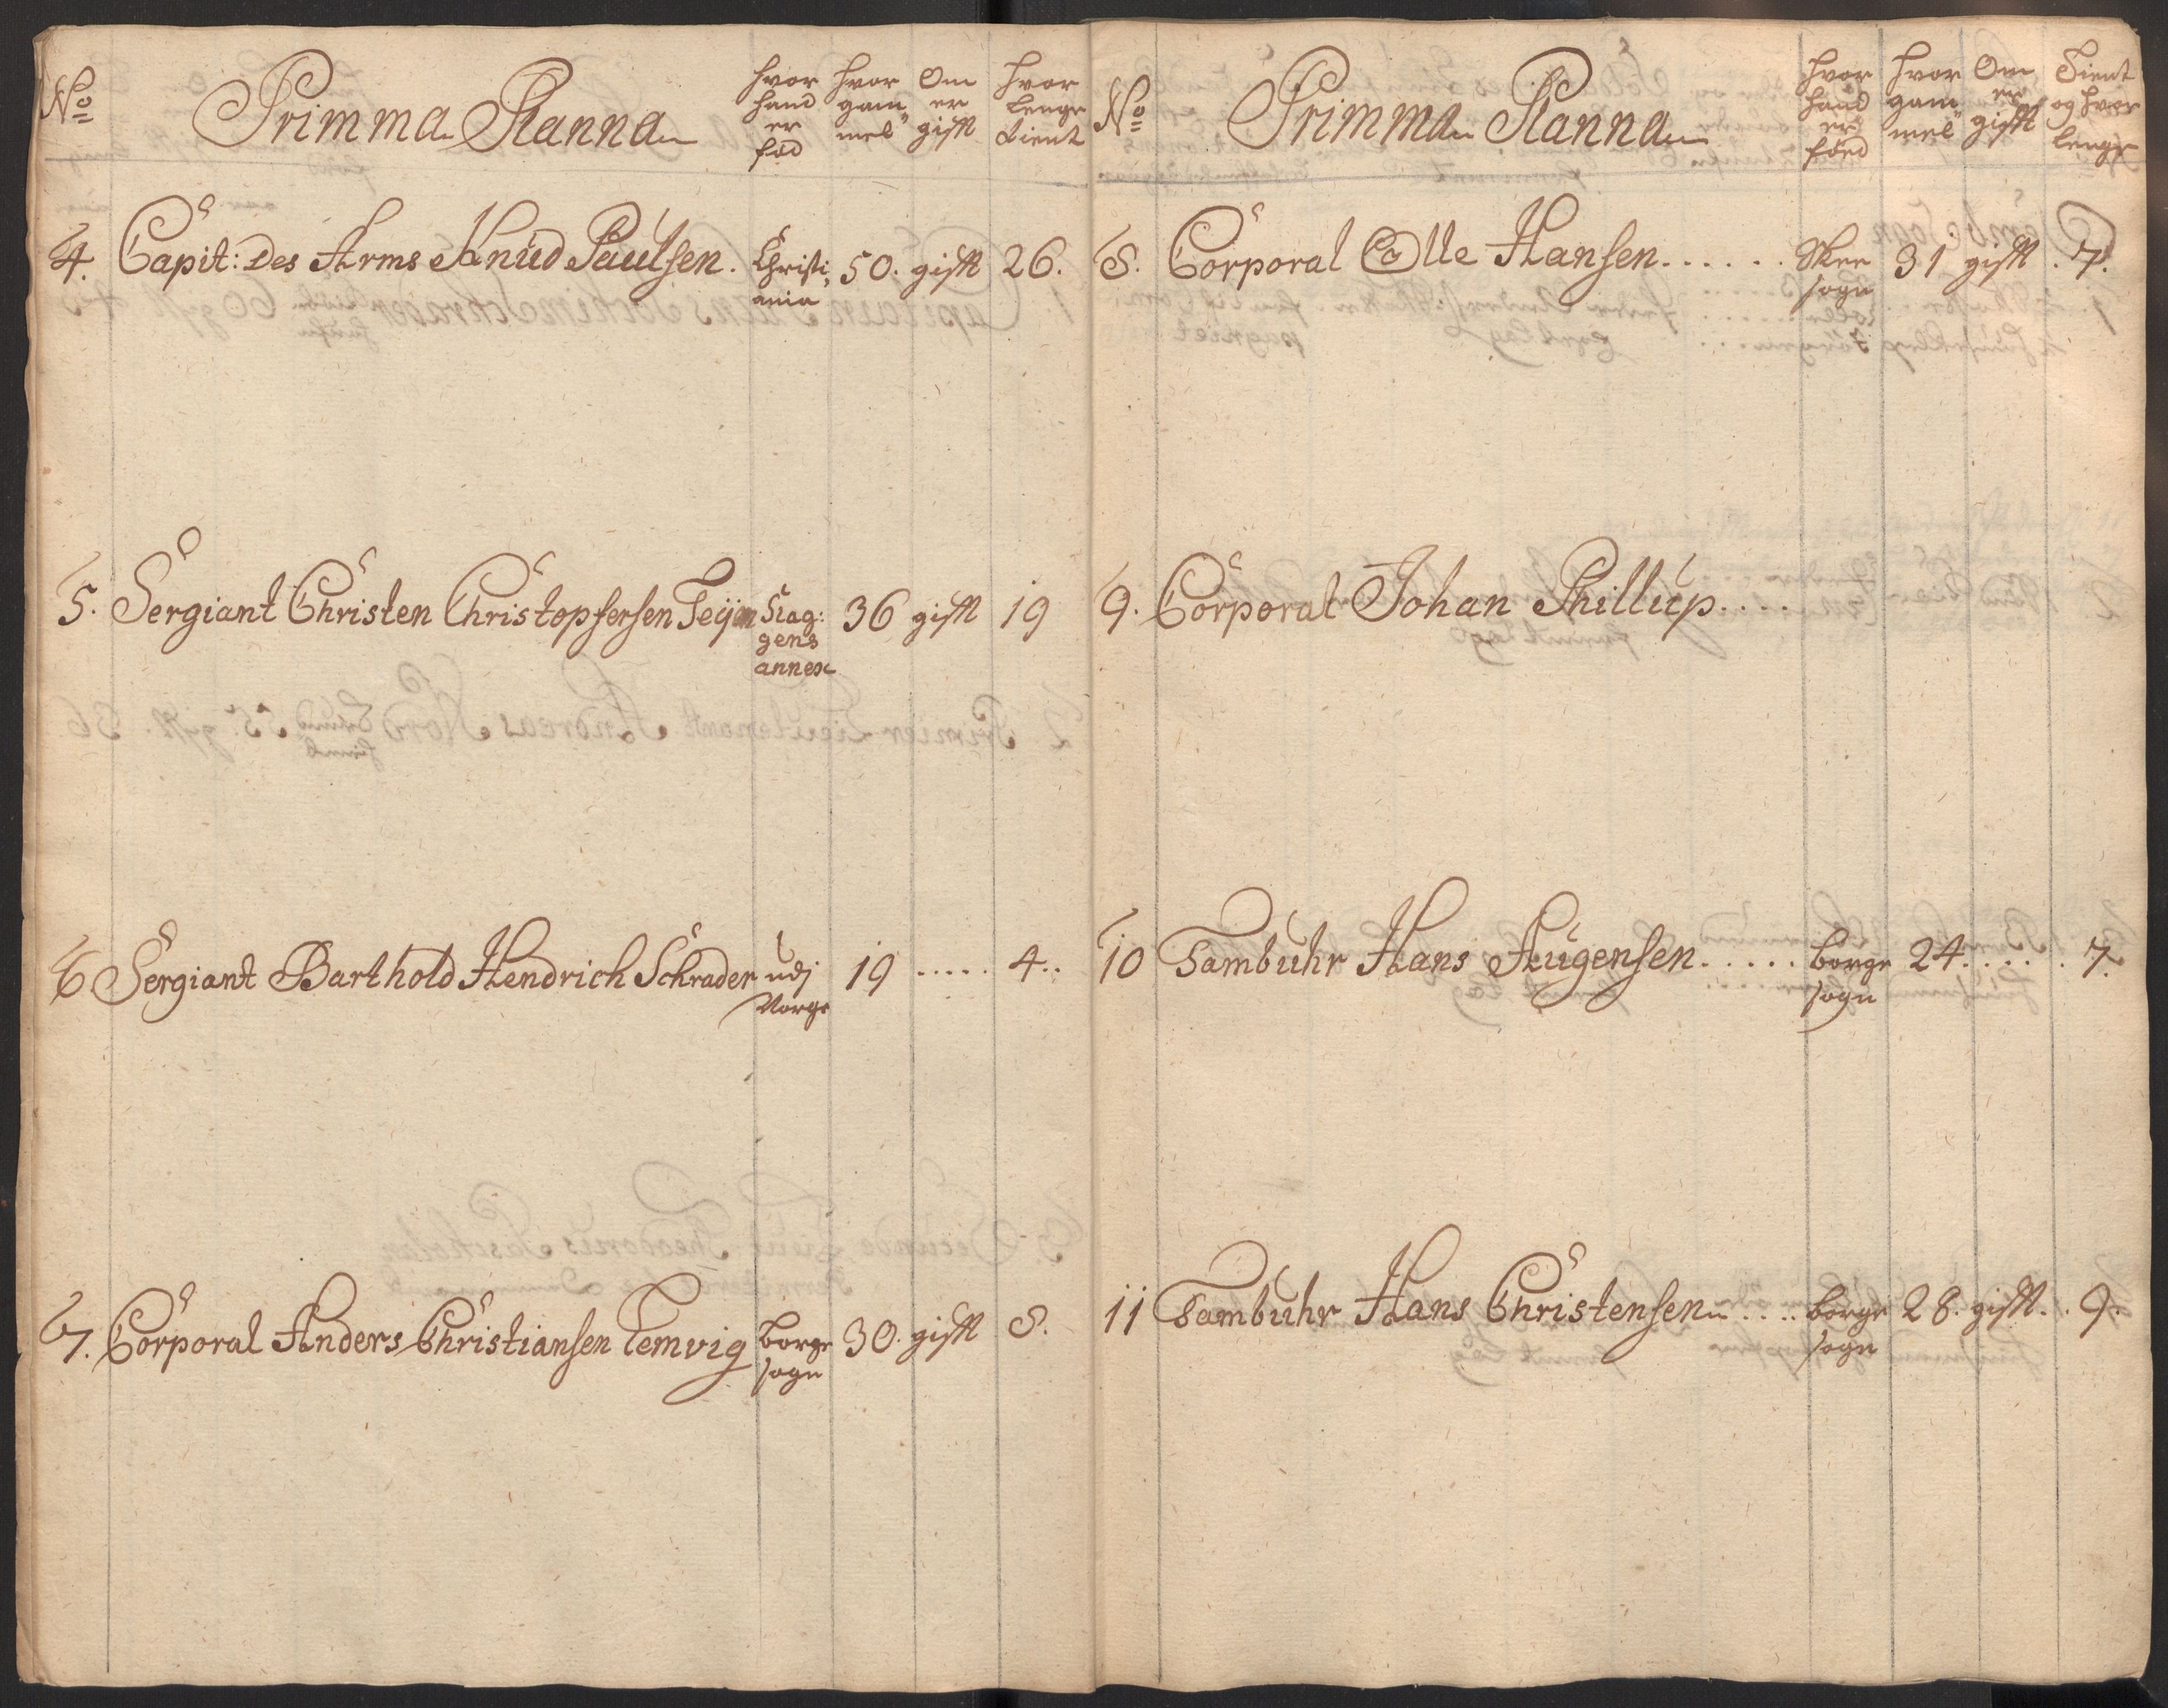 No Primma Planna hvor hand er fød hvor gam„ mel Om er gifft hvor lenge tient
4. Capit: Des Arms Knud Paulsen. Christi„ 50. gifft 26.
ania
5. Sergiant Christen Christophersen 36 gifft 19
gens
annex
6 Sergiant Barthold Hendrich Schrader udj 19 ..... 4..
Norge
7. Corporal Anders Christiansen Lemvig borge 30. gifft 8.
sogn
No Primma Planna hvor hand er föed hvor gam„ mel Om er gifft Tient og hvor lenge
8. Corporal Olle Hansen...... Skee 31 gifft . 7.
sogn
9. Corporal Johan Phillup....
10 Tambuhr Hans Augensen..... borge 24..... 7.
sogn
11 Tambuhr Hans Christensen .... borge 28. gifft. . 9.
sogn